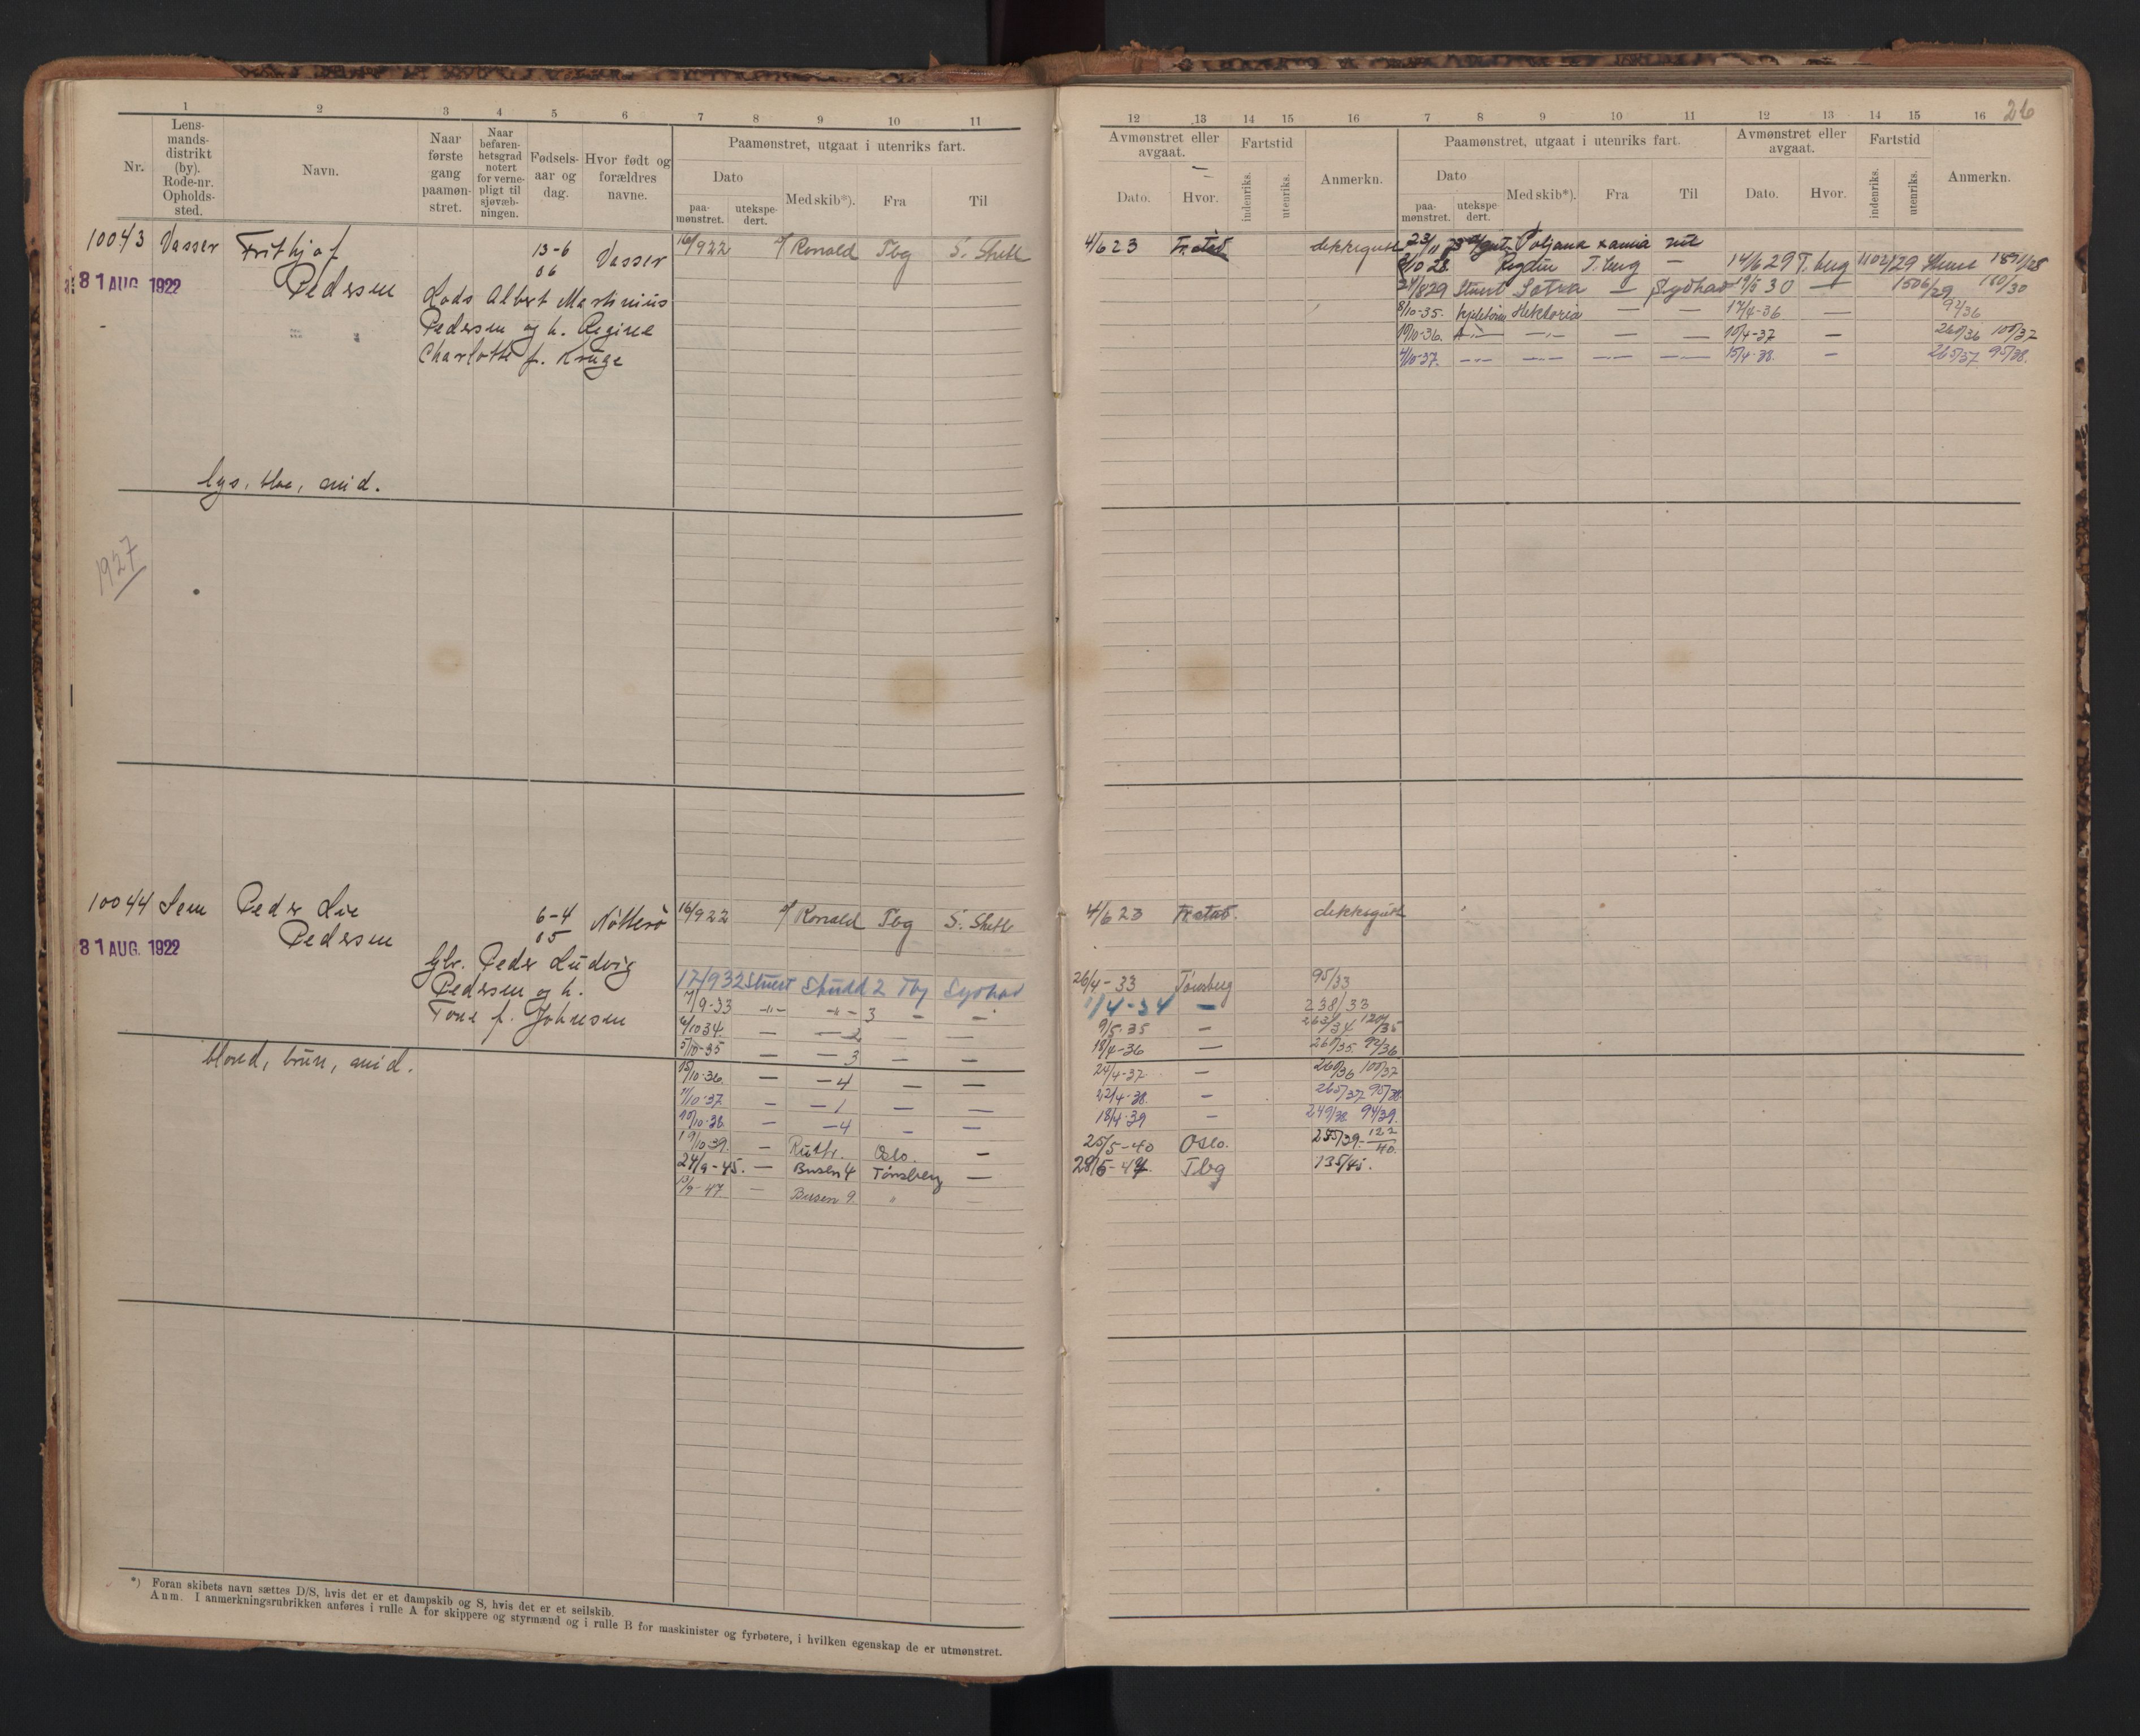 1 2 3 4 5 6 7 8 9 10 11
Nr.
Lens-
mands-
distrikt
(by).
Rode-nr.
Opholds-
sted.
Navn.
Naar
første
gang
paamøn-
stret.
Naar
befaren-
hetsgrad
notert
for verne-
pligt til
sjøvæb-
ningen.
Fødsels-
aar og
dag.
Hvor født og
forældres
navne.
Paamønstret, utgaat i utenriks fart.
Dato
paa-
mønstret.
utekspe-
dert.
Med skib*).
Fra
Til
10043 Vasser Frithjof 13-6 Vasser 16/9 22 Ronald Tbg S. Shetl
06
31 AUG 1922 Pedersen Lods Albert Martinius
Pedersen og h. Regine
Charlotte f. Krüge
lys, blaa, mid.
1927
10044 Sem Peder Lie 6-4 Nøtterø 16/9 22 Ronald Tbg S. Shetl
05
31 AUG. 1922 Pedersen
Gbr. Peder Ludvig
Pedersen og h. 17/9 32 Stuert Skudd 2 Tbg Sydhav
Tone f. Johnsen 7/9-33 -"- -"- 3 — —
6/10 34. — — 2 — —
5/10-35 — — 3 — —
blond, brun, mid.
15/10-36. — — 4 — —
11/10-37 — — 1 — —
10/10-38. — — 4 — —
19/10 39. — Ruth. Oslo. —
24/9-45. — Busen 4 Tønsberg —
13/9-47. — Busen 9. " —
*) Foran skibets navn sættes D/S, hvis det er et dampskib og S, hvis det er et seilskib.
Anm. I anmerkningsrubrikken anføres i rulle A for skippere og styrmænd og i rulle B for maskinister og fyrbøtere, i hvilken egenskap de er utmønstret.
26
12 13 14 15 16 7 8 9 10 11 12 13 14 15 16
Avmønstret eller
avgaat.
Dato.
Hvor.
Fartstid
indenriks.
utenriks.
Anmerkn.
Paamønstret, utgaat i utenriks fart.
Dato
paa-
mønstret.
utekspe-
dert.
Med skib*).
Fra
Til
Avmønstret eller
avgaat.
Dato.
Hvor.
Fartstid
indenriks.
utenriks.
Anmerkn.
4/6 23 Fr.stad dekksgutt 23/11 Poljana
10 28. T. berg — 14/6 29 T. berg 1102/29
21/8 29 Stuert Sotra — Sydhav 19/5 30 — 1506/29 180/30
8/10-35. Hektoria — — 17/4-36 — 94/36
10/10-36. — — — 10/4-37 — 260/36 100/37
4/10-37. — — — — 15/4-38. — 265/37 95/38.
4/6 23 Fr.stad. dekksgutt
26/4-33 Tønsberg 95/33
11/4-34 — 238/33
9/5-35 — 263/34 120/35
18/4-36 — 260/35. 92/36
24/4-37 — 260/36 100/37
22/4-38. — 265/37 95/38
18/4-39 — 249/38 94/39.
25/5-40 Oslo. 255/39. 122/40.
28/5-47. Tbg 135/45.